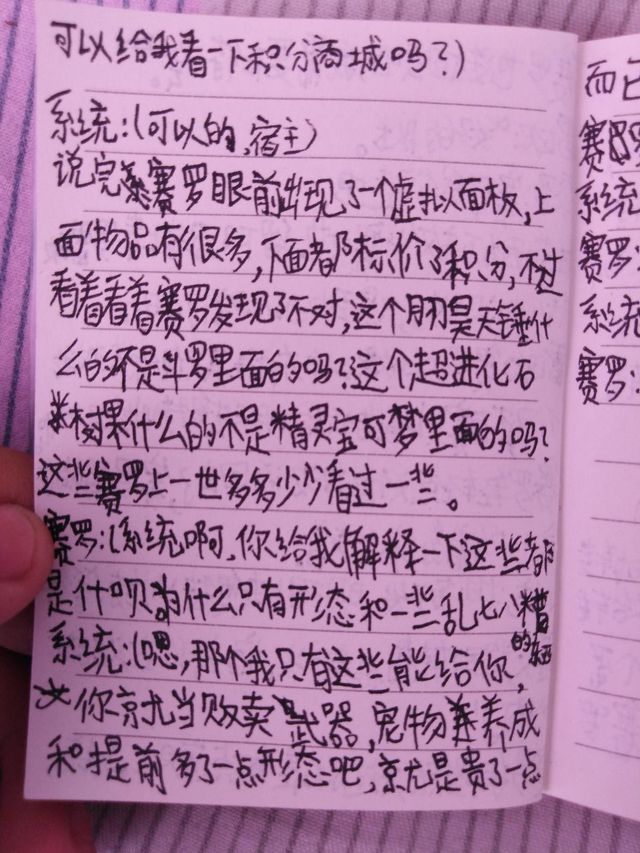 可以给我看一下积分商城吗?)
系统:(可以的,宿主)
说完赛罗眼前出现了一个虚拟面板,上
面物品有很多,下面都标价了积分,不过
看着看着赛罗发现了不对,这个昊天锤什
么的不是斗罗里面的吗?这个超进化石
树果什么的不是精灵宝可梦里面的吗?
这些赛罗上一世多多少少看过一些。
赛罗:(系统啊,你给我解释一下这些都
是什呗为什么只有形态和一些乱七八糟
的东西
系统:(嗯,那个我只有这些能给你,
你就当贩卖武器,宠物养成
和提前多了一点形态吧,就是贵了一点
而已
赛罗
系统
赛罗:
系统
赛罗: